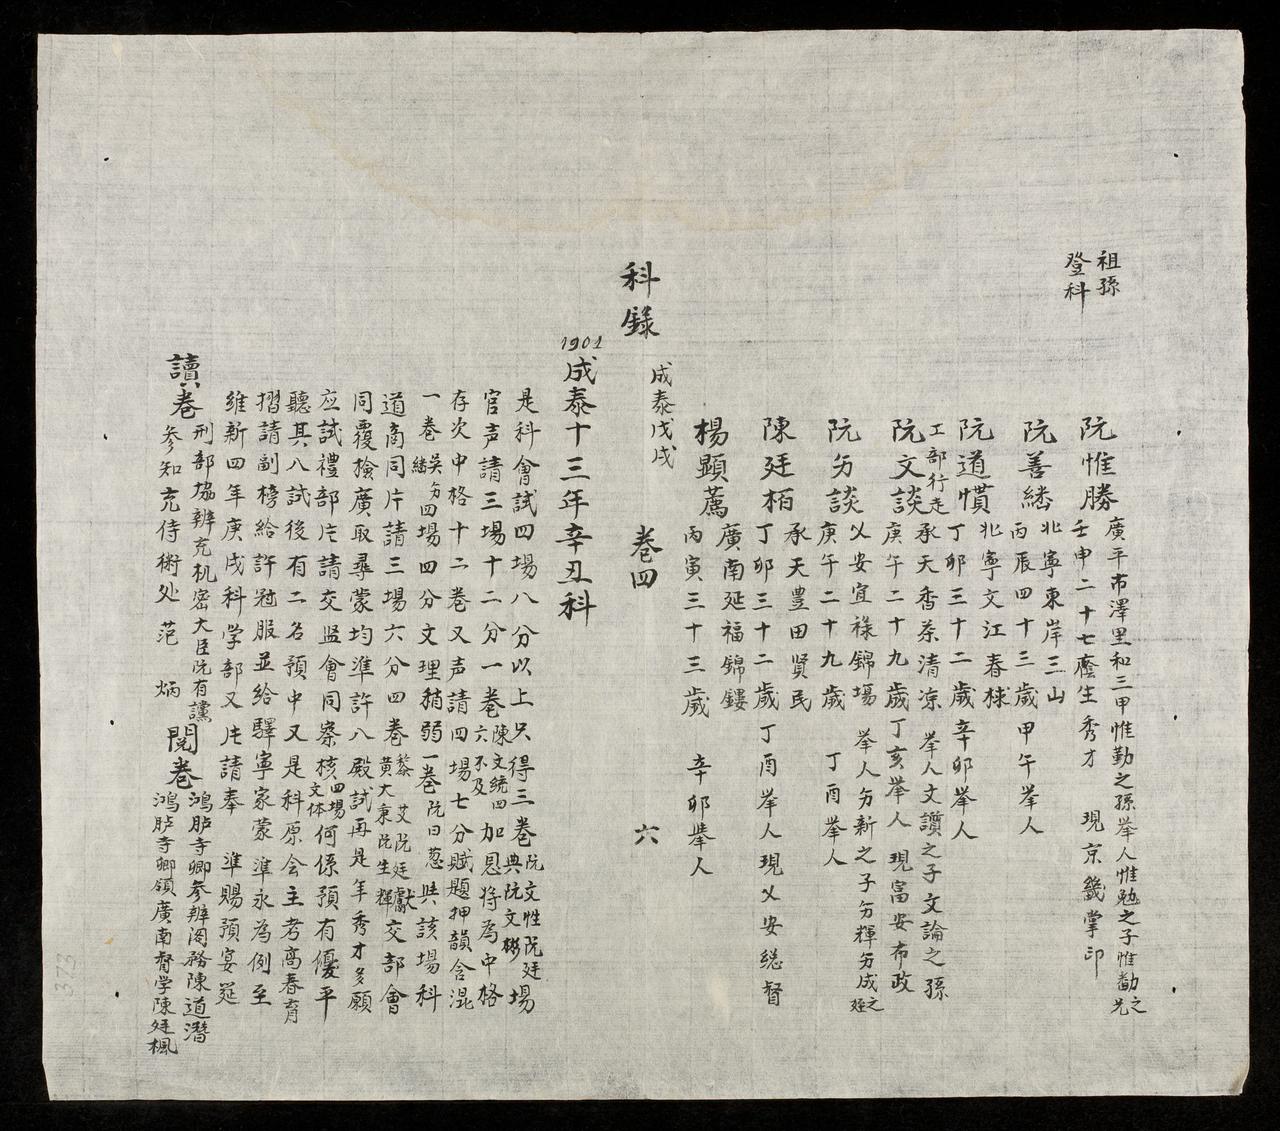 祖孫
登科
阮惟勝
廣平市澤里和三甲惟勤之孫举人惟勉之子惟勸之兄
壬申二十七廕生秀才 現京畿掌印
阮善繕
北寧東岸三山
丙辰四十三歲甲午举人
阮道慣
北寧文江春梂
丁卯三十二歲辛卯举人
工部行走
阮文談
承天香茶清凉 举人文讚之子文論之孫
庚午二十九歲丁亥举人 現富安布政
阮夯談
乂安宜禄錦場 举人夯新之子夯輝夯成之姪
庚午二十九歲 丁酉举人
陳廷栢
承天豊田賢民
丁卯三十二歲丁酉举人現乂安總督
楊顯薦
廣南延福錦鏤
丙寅三十三歲 辛卯举人
科錄
成泰戊戌
卷四
六
1901
成泰十三年辛丑科
是科會試四場八分以上只得三卷阮文性阮廷典阮文彬場
官声請三場十二分一卷陳文統四六不及加恩将為中格
存次中格十二卷又声請四場七分賦題押韻含混
一卷吳夯繕四場四分文理稍弱一卷阮曰葱与該場科
道商同片請三場六分四卷黎艾阮廷獻黄大秉阮生輝交部會
同覆檢廣取尋蒙均準許八殿試再是年秀才多願
应試禮部片請交监會同察核四場文体何係預有優平
聽其八試後有二名預中又是科原会主考高春育
摺請副榜給許冠服並給驛寧家蒙準永為例至
維新四年庚戌科学部又片請奉 準賜預宴筵
讀卷
刑部協辨充机密大臣阮有讜
参知充侍衛处 范 炳
閱卷
鴻胪寺卿参辨阁務陳道潛
鴻胪寺卿領廣南督学陳廷楓
373